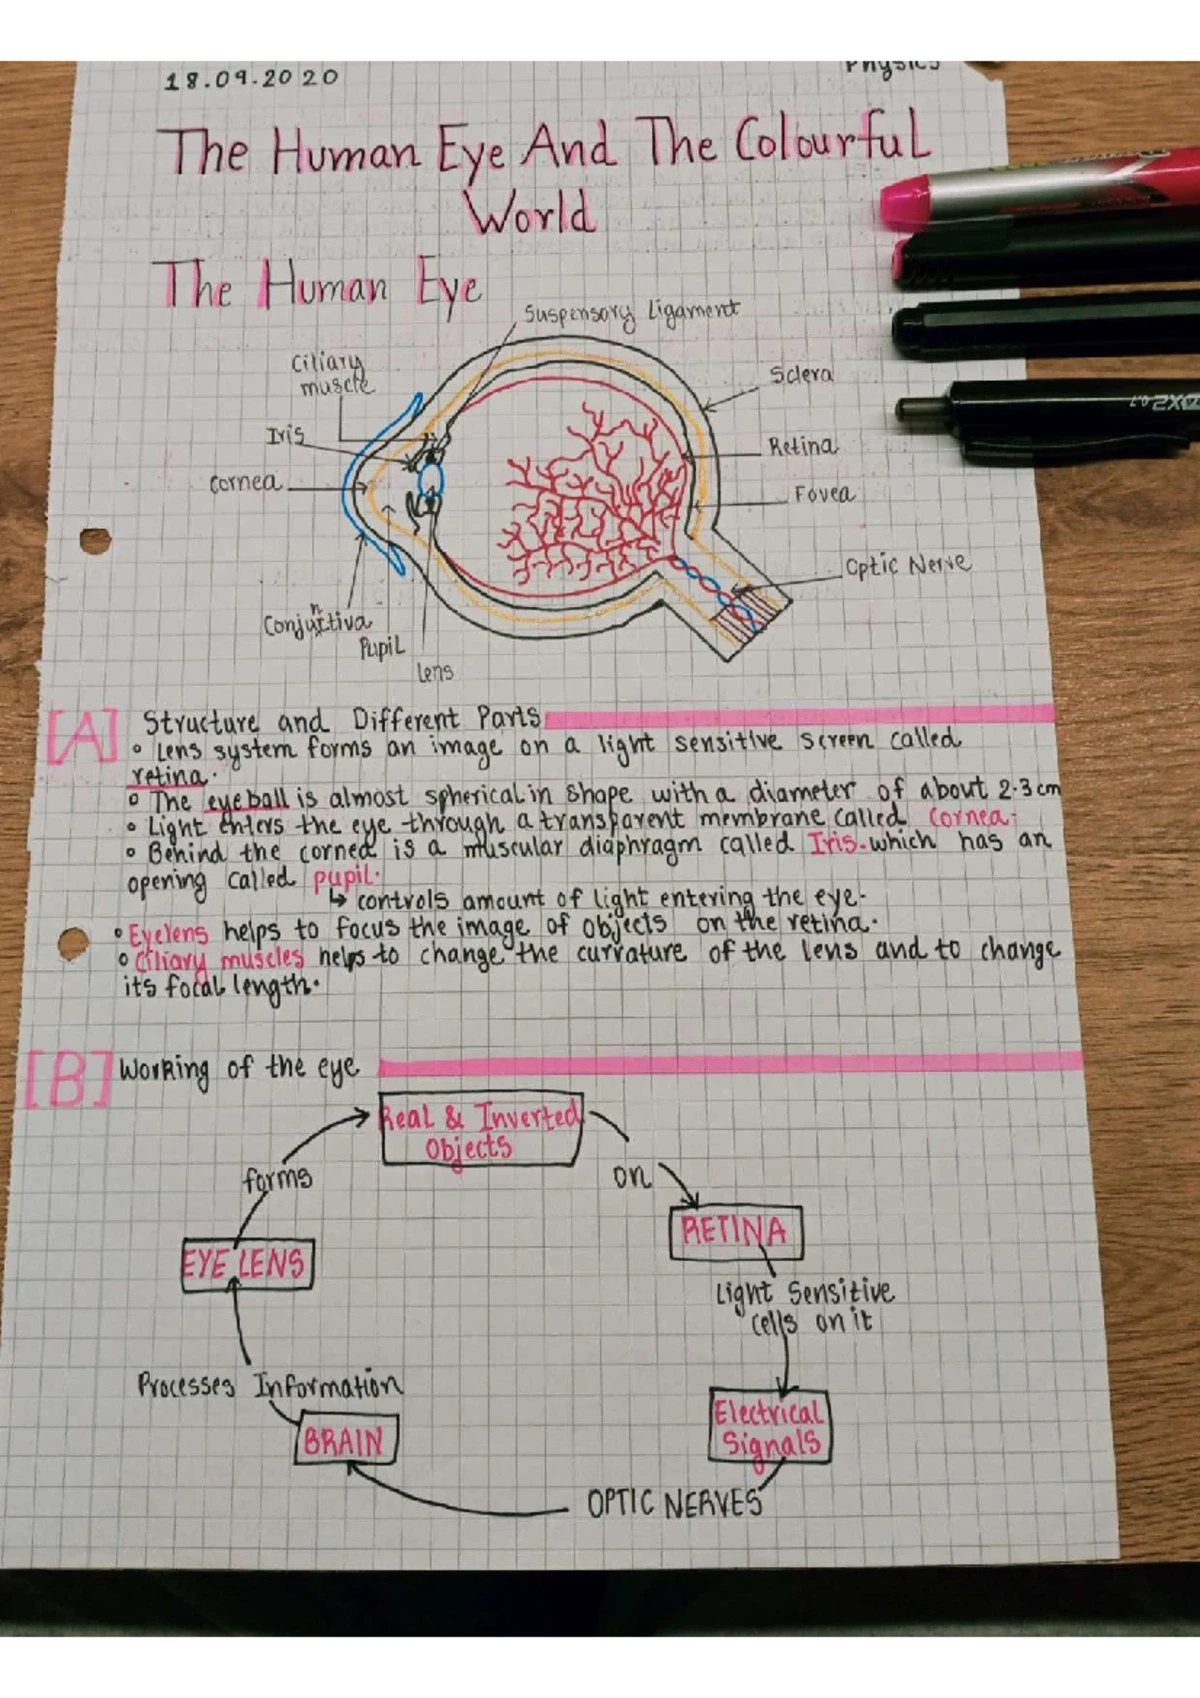 18.09.2020
Physics
The Human Eye And The Colourful
World
The Human Eye
Suspensory Ligament
Ciliary
muscle
Sclera
Iris
Retina
Cornea
Fovea
Optic Nerve
Conjuctiva
n
Pupil
Lens
[A] Structure and Different Parts
• Lens system forms an image on a light sensitive screen called
retina.
• The eyeball is almost spherical in shape with a diameter of about 2.3cm
• Light enters the eye through a transparent membrane called Cornea.
• Behind the cornea is a muscular diaphragm called Iris. which has an
opening called pupil.
↳ controls amount of light entering the eye.
• Eyelens helps to focus the image of objects on the retina.
• Ciliary muscles helps to change the curvature of the lens and to change
its focal length.
[B] Working of the eye
Real & Inverted
Objects
forms
on
RETINA
EYE LENS
Light Sensitive
cells on it
Processes Information
Electrical
Signals
BRAIN
OPTIC NERVES